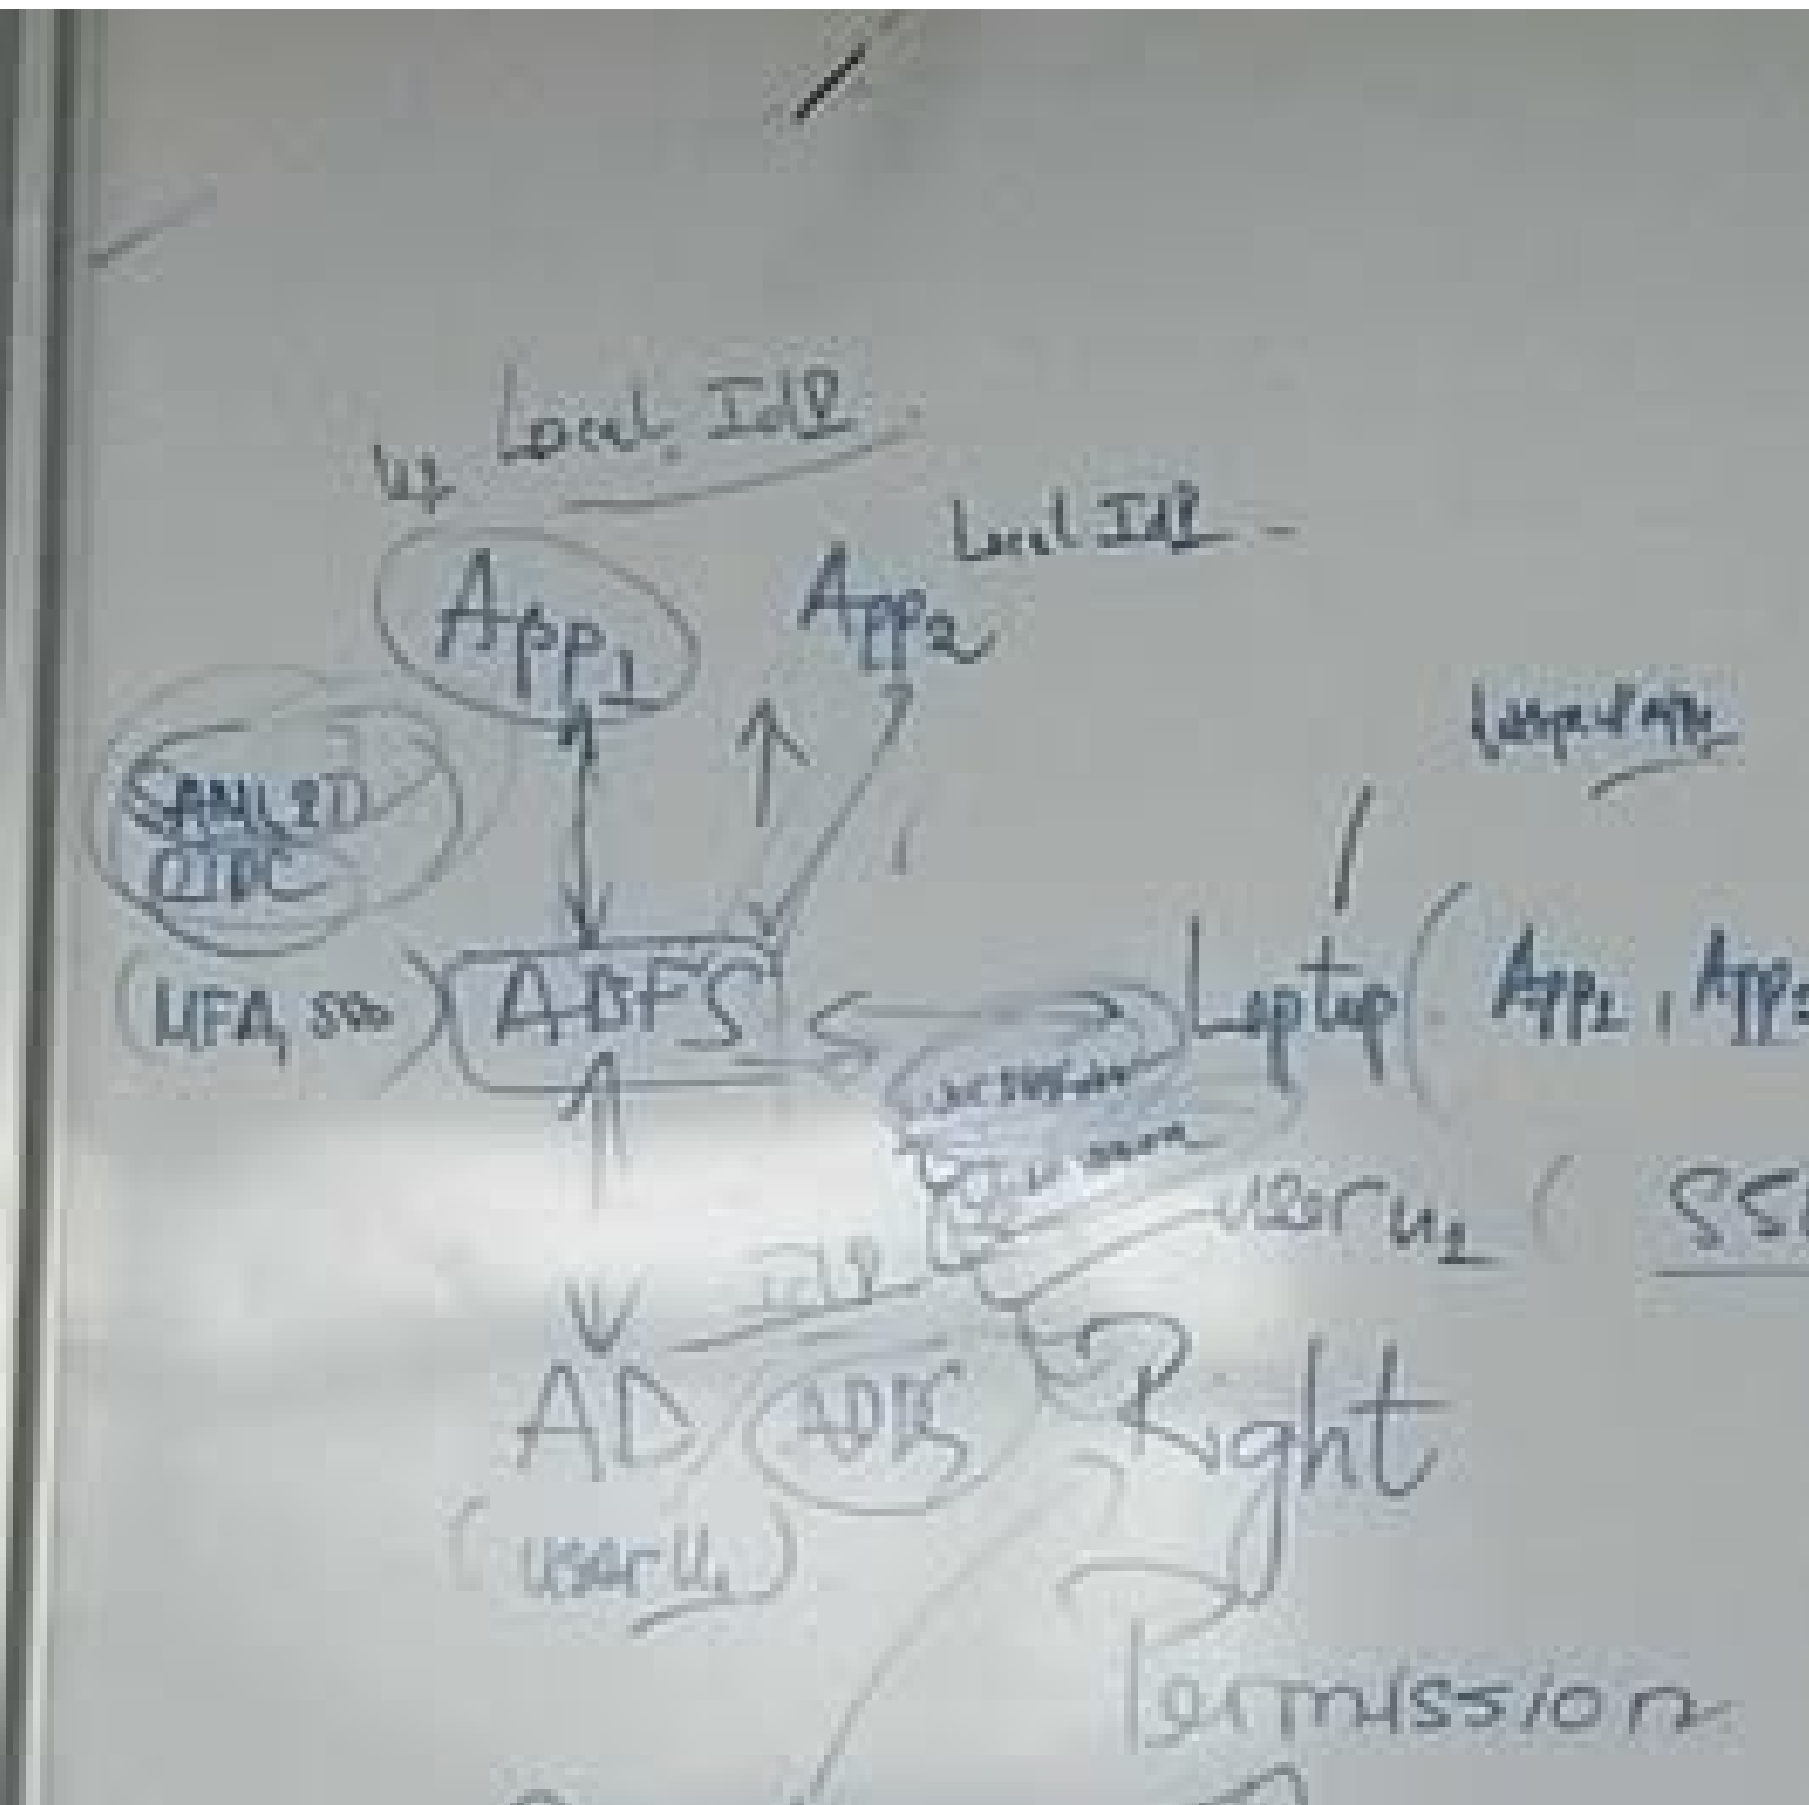 u1 Local IdP
Local IdP
App1
App2
SAML2D
OIDC
(MFA, SSO)
ADFS
Laptop (App1, App2
user u1 (
IdP
AD
ADDS
(user u1)
Right
Permission